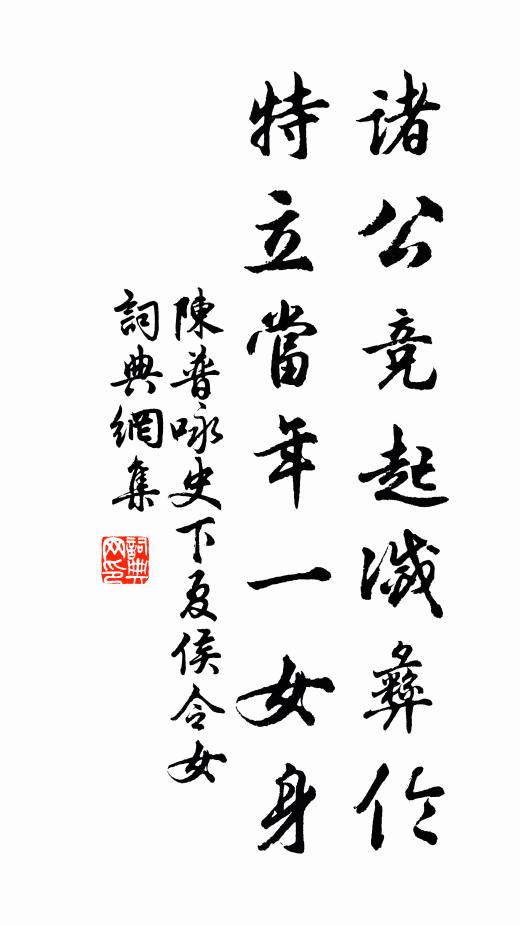 諸公竞起滅彝伦
特立當年一女身
陳普咏史下夏侯令女
詞典網集
詞典网印